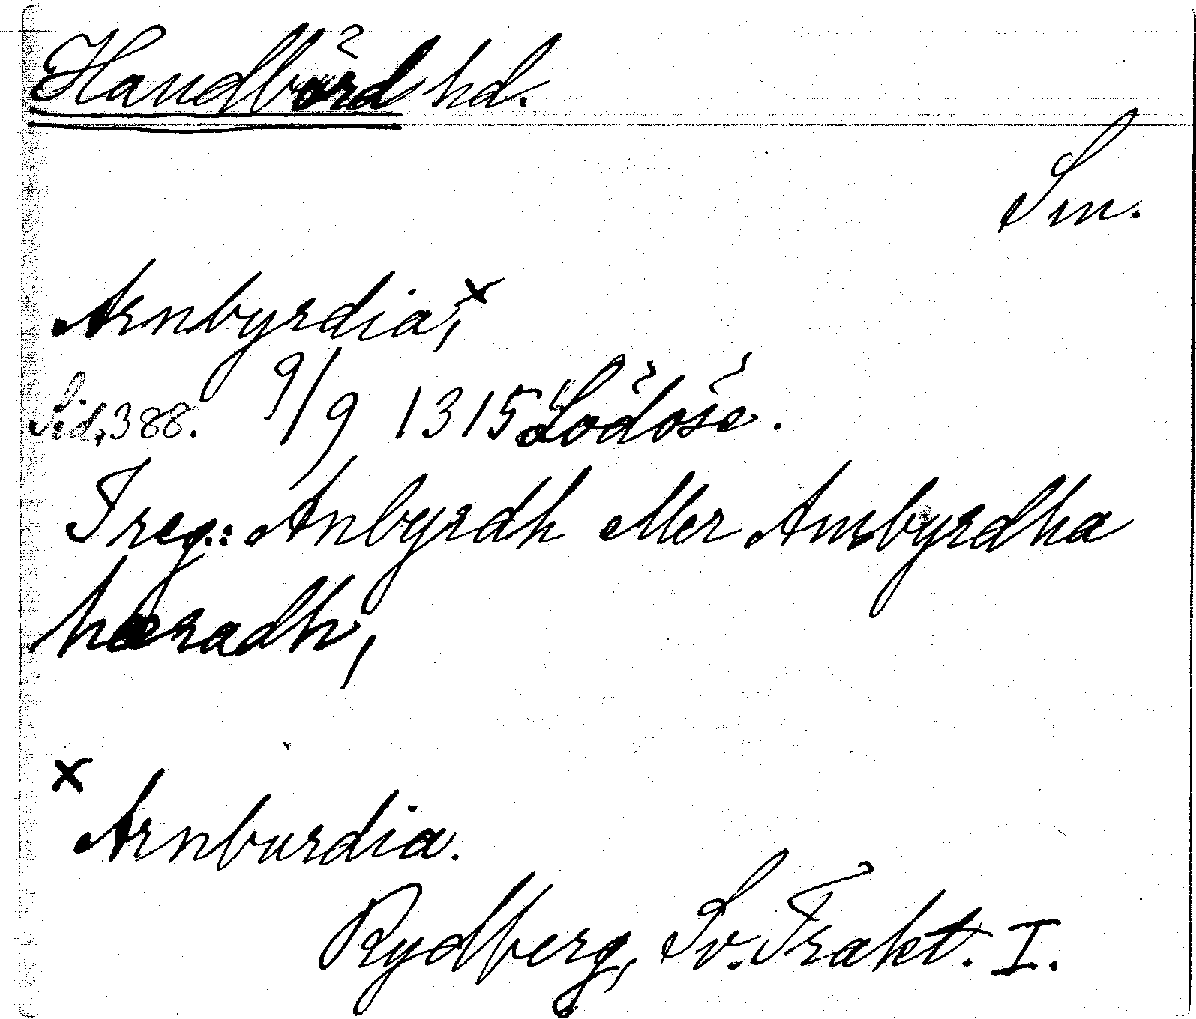 Handbörd hd.
Sm.
Arnbyrdia,×
Sid. 388. 9/9 1315 Lödöse.
I reg.: Anbyrdh eller Ambyrdha
hæradh,
× Arnburdia.
Rydberg, Sv. Trakt. I.